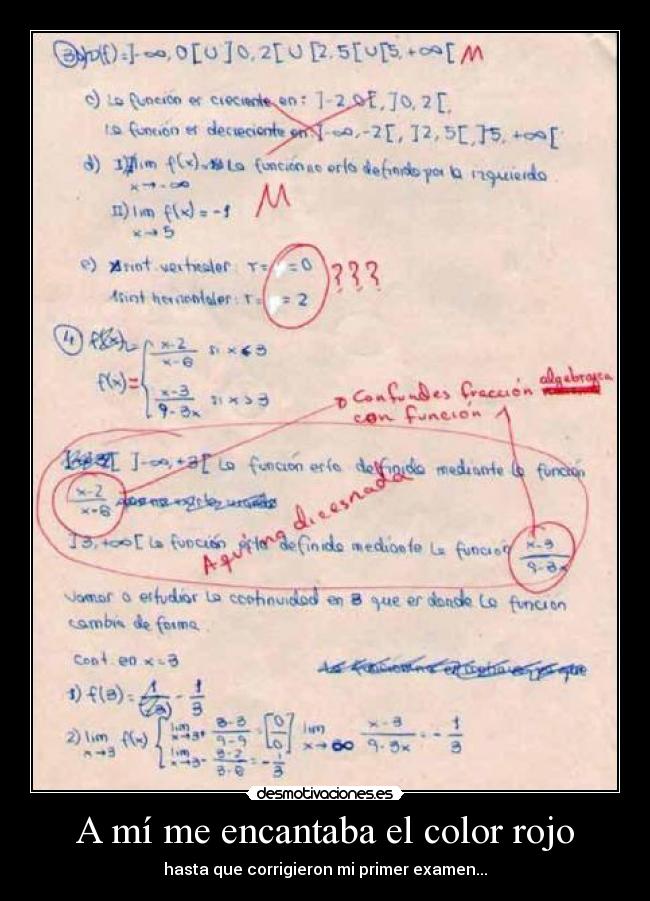 3 b) D(f) = ]-∞, 0[ U ]0, 2[ U [2, 5[ U [5, +∞[ M
c) La función es creciente en: ]-2, 0[, ]0, 2[,
La función es decreciente en: ]-∞, -2[, ]2, 5[, ]5, +∞[
d) I) lim f(x) La función no está definida por la izquierda.
x→-∞
M
II) lim f(x) = -1
x→5
e) Asint. verticales: r = = 0
???
Asint horizontales: r = = 2
4 f(x) =
x-2 / x-6 si x ≤ 3
f(x) =
x-3 / 9-3x si x > 3
Confundes fracción algebraica
con función
]-∞, +3[ La función está definida mediante la función
x-2 / x-6
Aquí no dices nada
]3, +∞[ La función está definida mediante la función x-3 / 9-3x
Vamos a estudiar la continuidad en 3 que es donde la función
cambia de forma.
Cont. en x=3
1) f(3) = - 1/3
2) lim x→3 f(x) { lim x→3+ 3-3 / 9-9 = [0/0] lim x→∞ x-3 / 9-3x = - 1/3
lim x→3- 3-2 / 3-6 = - 1/3
desmotivaciones.es
A mí me encantaba el color rojo
hasta que corrigieron mi primer examen...